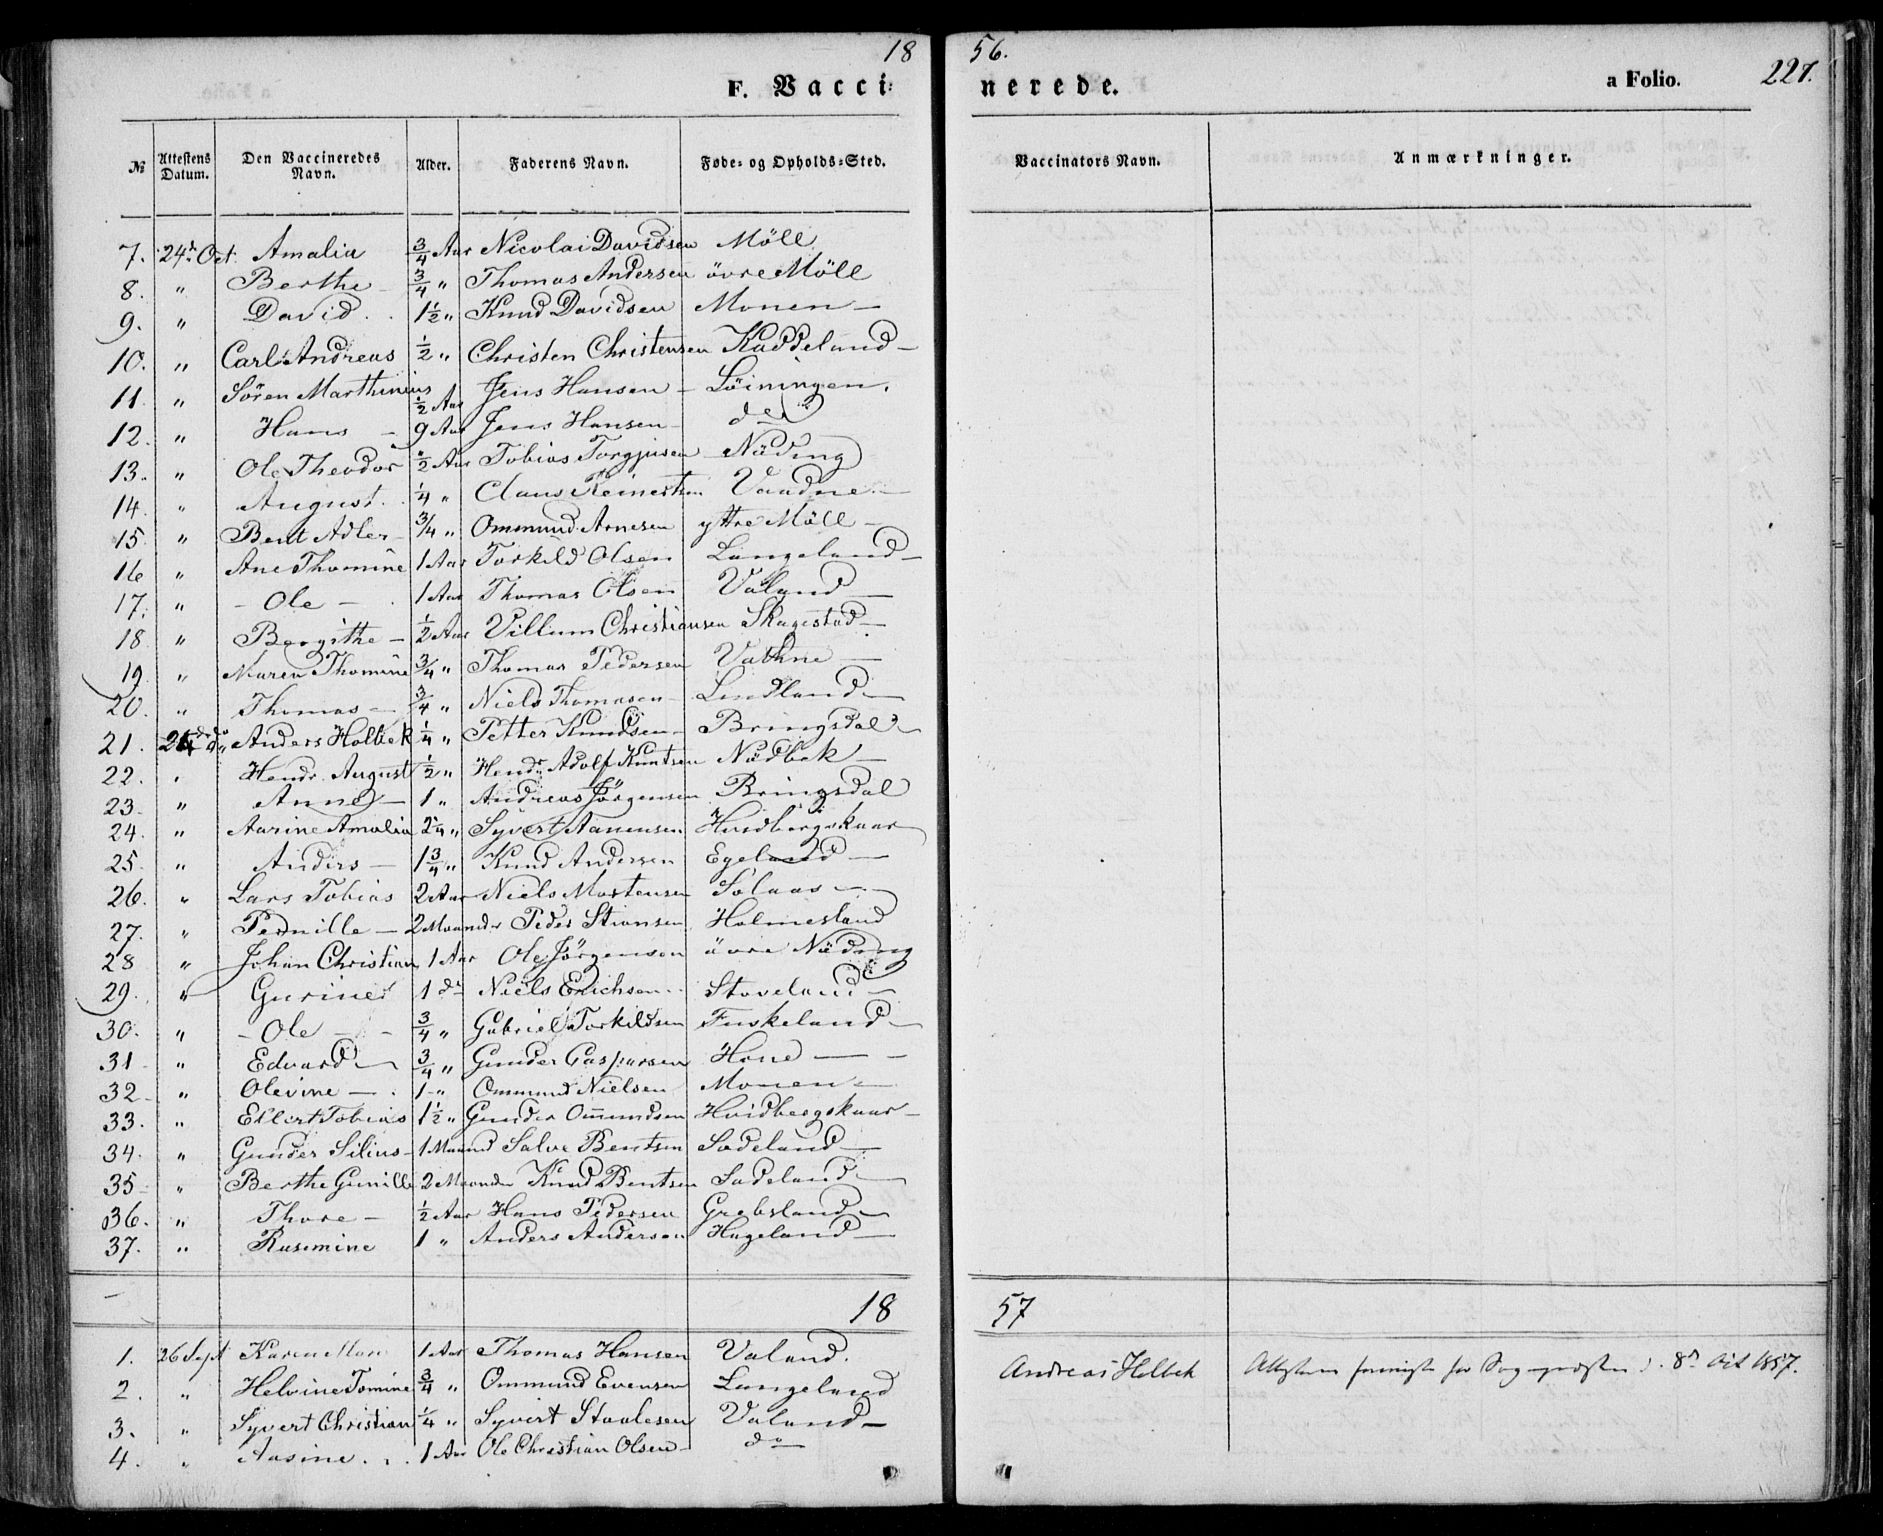 1856.
F. Vaccinerede. a Folio. 227.
№ Attestens Datum. Den Vaccineredes Navn. Alder. Faderens Navn. Føde- og Opholds-Sted. Vaccinators Navn. Anmærkninger.
7. 24de Oct. Amalia 3/4 Aar Nicolai Davidsen Möll
8. " Berthe 3/4 " Thomas Andersen övre Möll
9. " David 1 1/2 " Knud Davidsen Monen
10. " Carl Andreas 1/2 " Christen Christensen Kaddeland
11. " Sören Marthinius 1/2 Aar Jens Hansen Löiningen.
12. " Hans 9 Aar Jens Hansen do
13. " Ole Theodor 1/2 Aar Tobias Torgjusen Nöding
14. " August 1/4 " Claus Reinertsen Vaadne
15. " Bent Adler 3/4 " Ommund Arnesen yttre Möll
16. " Ane Thomine 1 Aar Torkild Olsen Langeland
17. " Ole 1 Aar Thomas Olsen Valand
18 " Bergithe 1/2 Aar Villum Christiansen Skagestad
19. " Maren Thomine 3/4 " Thomas Pedersen Vathne
20. " Thomas 3/4 " Niels Thomasen Lindland
21. 24de do Anders Holbek 1/4 " Petter Knudsen Bringsdal
22. " Hendr. August 1/2 " Hendr. Adolf Kuntsen Nödbek
23. " Anne 1 " Andreas Jörgensen Bringsdal
24. " Aarine Amalia 2 1/4 " Syvert Aanensen Hvidbergskaar
25. " Anders 1 3/4 " Knud Andersen Egeland
26. " Lars Tobias 2 Aar Niels Mortensen Solaas
27. " Pernille 2 Maaneder Peder Stiansen Holmesland
28 " Johan Christian 1 Aar Ole Jörgensen övre Nöding
29. " Gurine 1 do Niels Erichsen Stoveland
30. " Ole 3/4 " Gabriel Torkildsen Fuskeland
31 " Edvard 3/4 " Gunder Casparsen Hone
32 " Olevine 1 " Ommund Nielsen Monen
33. " Ellert Tobias 1 1/2 " Gunder Ommundsen Hvidbergskaar
34. " Gunder Silius 1 Maaned Salve Bentsen Sodeland
35 " Berthe Gunille 2 Maaneder Knud Bentsen Sodeland
36. " Thore 1/2 Aar Hans Pedersen Grebsland
37. " Rusemine 1 " Anders Andersen Hageland
1857
1. 26 Sept Karen Mari 1 Aar Thomas Hansen Valand. Andreas Holbek Attesten fremvist for Sognepræsten d. 8de Oct 1857.
2. " Helvine Tomine 3/4 " Ommund Evensen Langeland
3. " Syvert Christian 1/4 " Syvert Staalesen Valand
4. " Aasine 1 Aar Ole Christian Olsen do